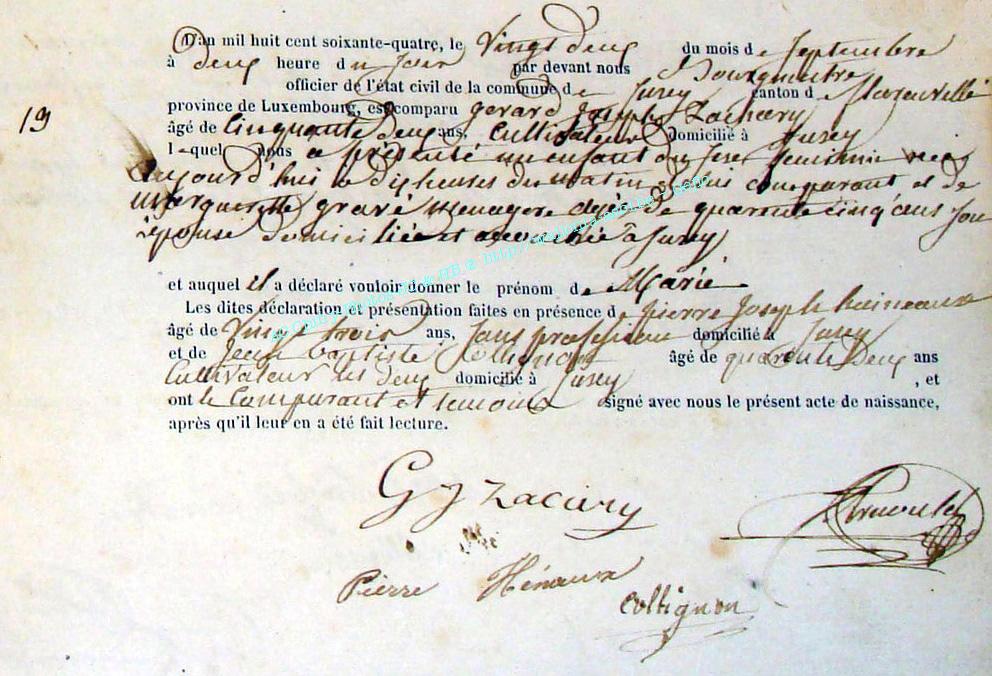 L'an mil huit cent soixante-quatre, le Vingt deux du mois de Septembre
à deux heure du jour par devant nous Bourgmestre
officier de l'état civil de la commune de Jusey canton de
province de Luxembourg, est comparu gerard Joseph Zachary
19
âgé de Cinquante deux ans, Cultivateur domicilié à Jusey
lequel nous a présenté un enfant du sexe feminin née
aujourd'huis a dix heures du matin de lui comparant et de
Marguerite gravé menagere agée de quarante cinq ans son
épouse domiciliée et accouchée à Jusey
et auquel il a déclaré vouloir donner le prénom de Marie
Les dites déclaration et présentation faites en présence de pierre Joseph heineaux
âgé de Vingt trois ans, sans profession domicilié à Jusey
et de Jean baptiste Collignon âgé de quarante deux ans
Cultivateur les deux domicilié à Jusey , et
ont le Comparant et temoins signé avec nous le présent acte de naissance,
après qu'il leur en a été fait lecture.
G J Zacary
Pierre Hénaux
Collignon